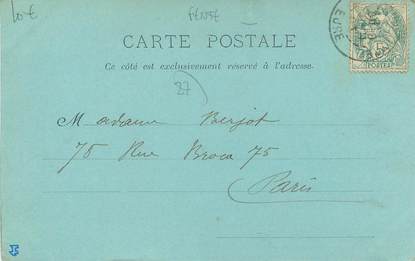 CARTE POSTALE
Ce côté est exclusivement réservé à l'adresse.
27
Madame Berjot
75 Rue Broca 75
Paris
EURE
POSTES